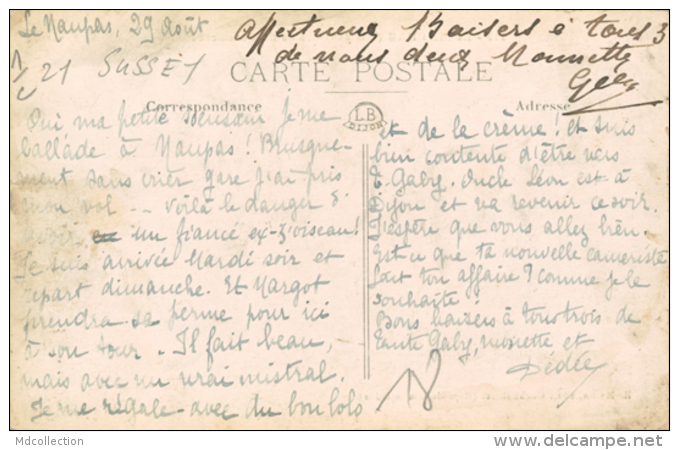 Le Maupas, 29 Août
Affectueux Baisers à tous 3
de nous deux Mounette
21 SUSSEY
CARTE POSTALE
Correspondance
LB
DIJON
Adresse
Oui ma petite je me
ballade à Maupas! Brusque-
ment sans crier gare j'ai pris
mon vol -- voilà le danger d'
avoir un fiancé ex-z'oiseau!
Je suis arrivée Mardi soir et
repart dimanche. Et Margot
prendra sa ferme pour ici
à son tour. Il fait beau,
mais avec un vrai mistral.
Je me régale avec du bon lolo
et de la crème! et suis
bien contente d'être vers
T. Gaby. Oncle Léon est à
Dijon et va revenir ce soir.
J'espère que vous allez bien.
est-ce que ta nouvelle camériste
fait ton affaire? comme je le
souhaite!
Bons baisers à tous trois de
tante Gaby, monette et
Dédée
Mdcollection
delcampe.net